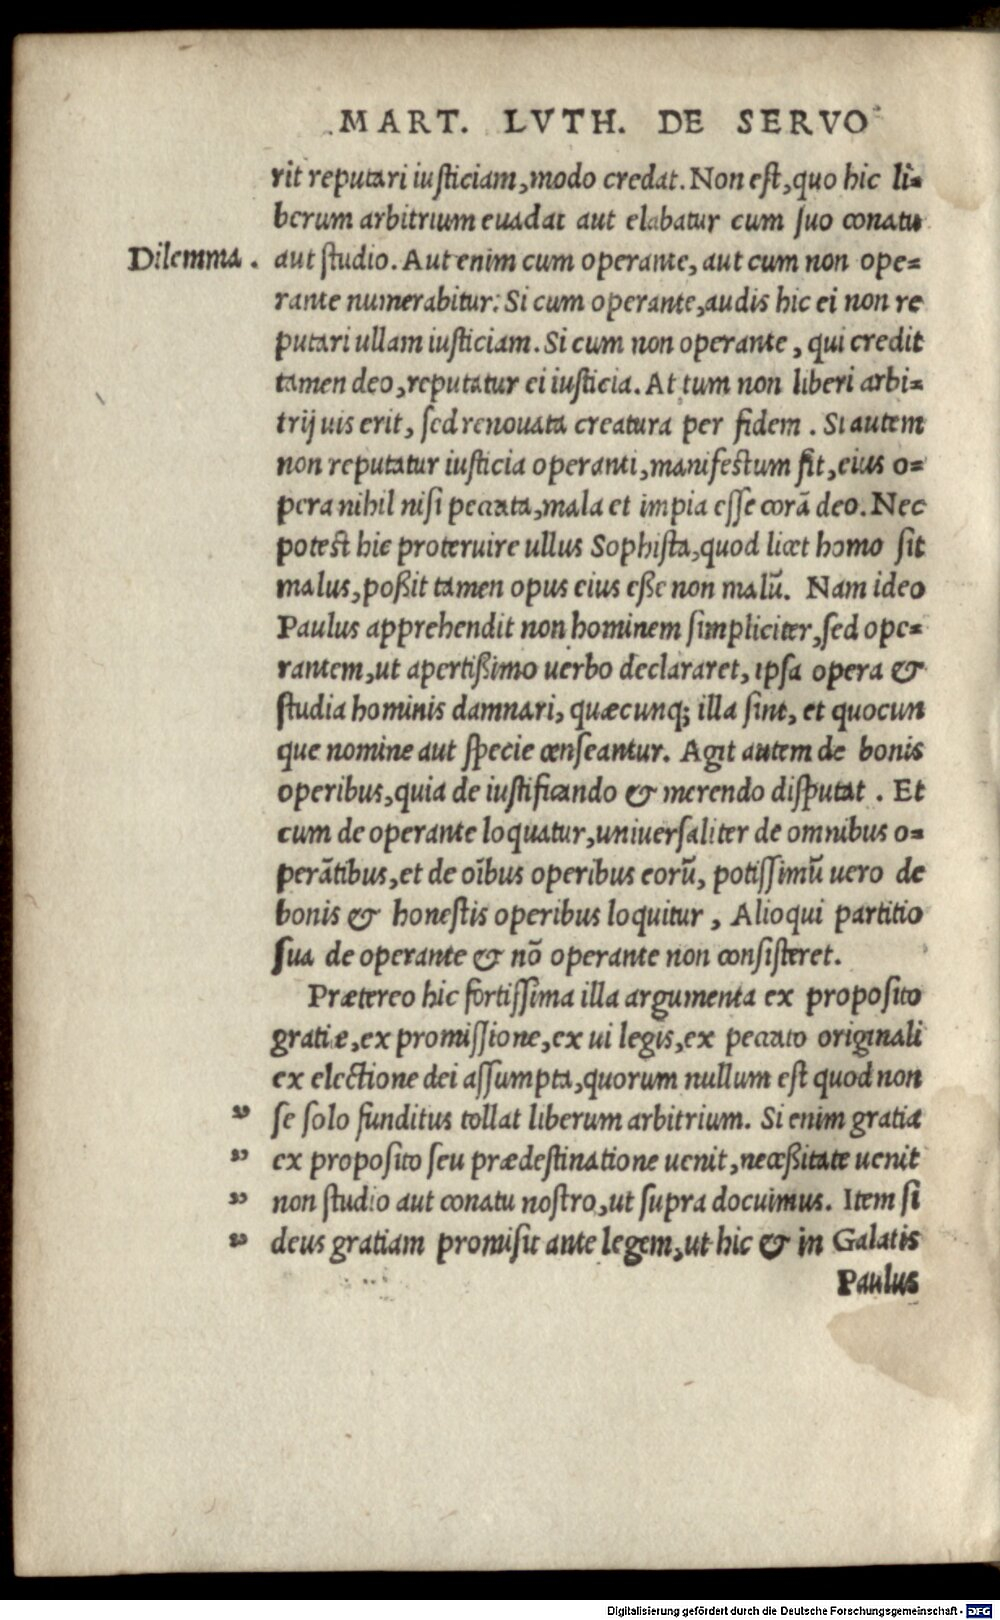 MART. LVTH. DE SERVO
rit reputari iusticiam, modo credat. Non est, quo hic li=
berum arbitrium euadat aut elabatur cum suo conatu
Dilemma. aut studio. Aut enim cum operante, aut cum non ope=
rante numerabitur: Si cum operante, audis hic ei non re
putari ullam iusticiam. Si cum non operante, qui credit
tamen deo, reputatur ei iusticia. At tum non liberi arbi=
trij uis erit, sed renouata creatura per fidem. Si autem
non reputatur iusticia operanti, manifestum fit, eius o=
pera nihil nisi peccata, mala et impia esse corā deo. Nec
potest hic proteruire ullus Sophista, quod licet homo sit
malus, poßit tamen opus eius eße non malū. Nam ideo
Paulus apprehendit non hominem simpliciter, sed ope=
rantem, ut apertißimo uerbo declararet, ipsa opera &
studia hominis damnari, quæcunq; illa sint, et quocun
que nomine aut specie censeantur. Agit autem de bonis
operibus, quia de iustificando & merendo disputat. Et
cum de operante loquatur, uniuersaliter de omnibus o=
perātibus, et de oībus operibus eorū, potissimū uero de
bonis & honestis operibus loquitur, Alioqui partitio
sua de operante & nō operante non consisteret.
Prætereo hic fortissima illa argumenta ex proposito
gratiæ, ex promissione, ex ui legis, ex peccato originali
ex electione dei assumpta, quorum nullum est quod non
„ se solo funditus tollat liberum arbitrium. Si enim gratia
„ ex proposito seu prædestinatione uenit, neceßitate uenit
„ non studio aut conatu nostro, ut supra docuimus. Item si
„ deus gratiam promisit ante legem, ut hic & in Galatis
Paulus
Digitalisierung gefördert durch die Deutsche Forschungsgemeinschaft - DFG